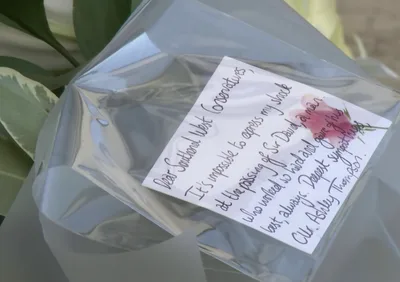 Dear Southend West Conservatives,
It's impossible to express my shock
at the passing of Sir David Amess,
who worked so hard and
best, always. Deepest sympathies,
Cllr. Ashley Thompson.